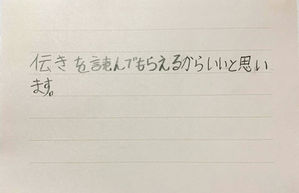 伝きを読んでもらえるからいいと思い
ます。